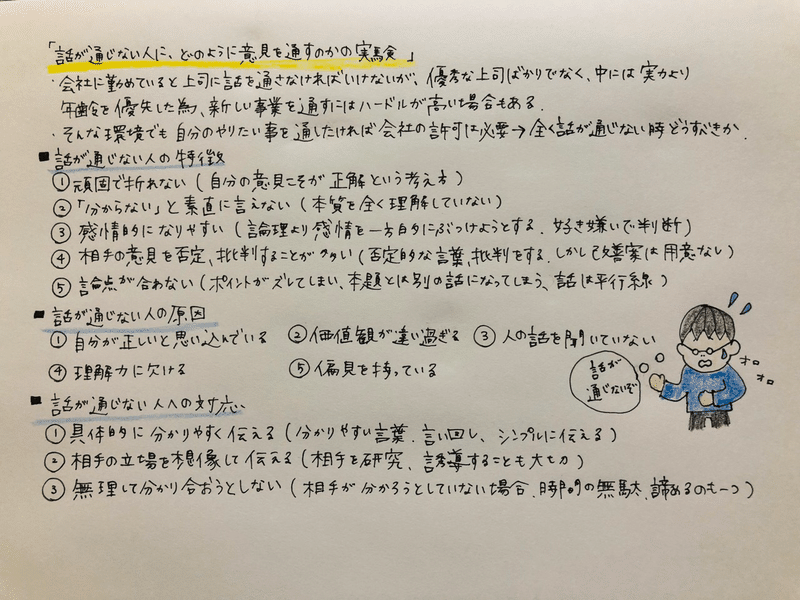 「話が通じない人に、どのように意見を通すのかの実験」
・会社に勤めていると上司に話を通さなければいけないが、優秀な上司ばかりでなく、中には実力より
年齢を優先した為、新しい事業を通すにはハードルが高い場合もある.
・そんな環境でも自分のやりたい事を通したければ会社の許可は必要→全く話が通じない時どうすべきか.
■話が通じない人の特徴
①頑固で折れない(自分の意見こそが正解という考え方)
②「分からない」と素直に言えない(本質を全く理解していない)
③感情的になりやすい(論理より感情を一方的にぶつけようとする.好き嫌いで判断)
④相手の意見を否定、批判することが多い(否定的な言葉、批判をする.しかし改善案は用意なし)
⑤論点が合わない(ポイントがズレてしまい、本題とは別の話になってしまう、話は平行線)
■話が通じない人の原因
①自分が正しいと思い込んでいる ②価値観が違い過ぎる ③人の話を聞いていない
④理解力に欠ける ⑤偏見を持っている
話が
通じないぞ
オロ
オロ
■話が通じない人への対応、
①具体的に分かりやすく伝える(分かりやすい言葉.言い回し、シンプルに伝える)
②相手の立場を想像して伝える(相手を研究、誘導することも大切)
③無理して分かり合おうとしない(相手が分かろうとしていない場合.時間の無駄、諦めるのも一つ)